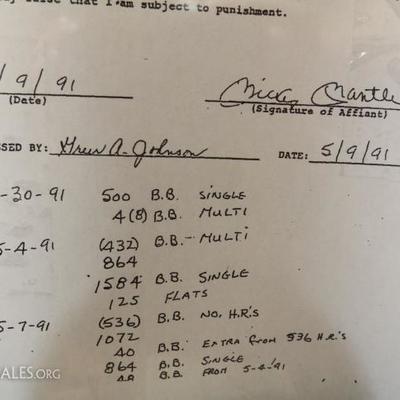 false that I am subject to punishment.
/9/91
(Date)
Micky Mantle
(Signature of Affiant)
SSED BY: Greer A. Johnson
DATE: 5/9/91
-30-91 500 B.B. SINGLE
4(8) B.B. MULTI
5-4-91 (432) B.B. - MULTI
864
1584 B.B. SINGLE
125 FLATS
5-7-91 (536) B.B. NO. H.R.'S
1072
40 B.B. EXTRA FROM 536 H.R.'S
864 B.B. SINGLE
48 B.B. FROM 5-4-91
ALES.ORG